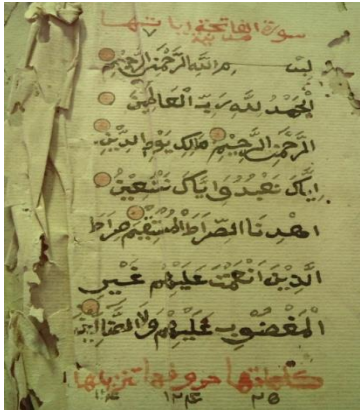 سورة الفاتحة
بسم الله الرَّحْمٰنِ الرَّحِيمِ
الْحَمْدُ لِلَّهِ رَبِّ الْعَالَمِينَ
الرَّحْمٰنِ الرَّحِيمِ مَالِكِ يَوْمِ الدِّينِ
اِيَّاكَ نَعْبُدُ وَاِيَّاكَ نَسْتَعِينُ
اهْدِنَا الصِّرَاطَ الْمُسْتَقِيمَ صِرَاطَ
الَّذِينَ اَنْعَمْتَ عَلَيْهِمْ غَيْرِ
الْمَغْضُوبِ عَلَيْهِمْ وَلَا الضَّالِّينَ
كلماتها حروفها
٢٥